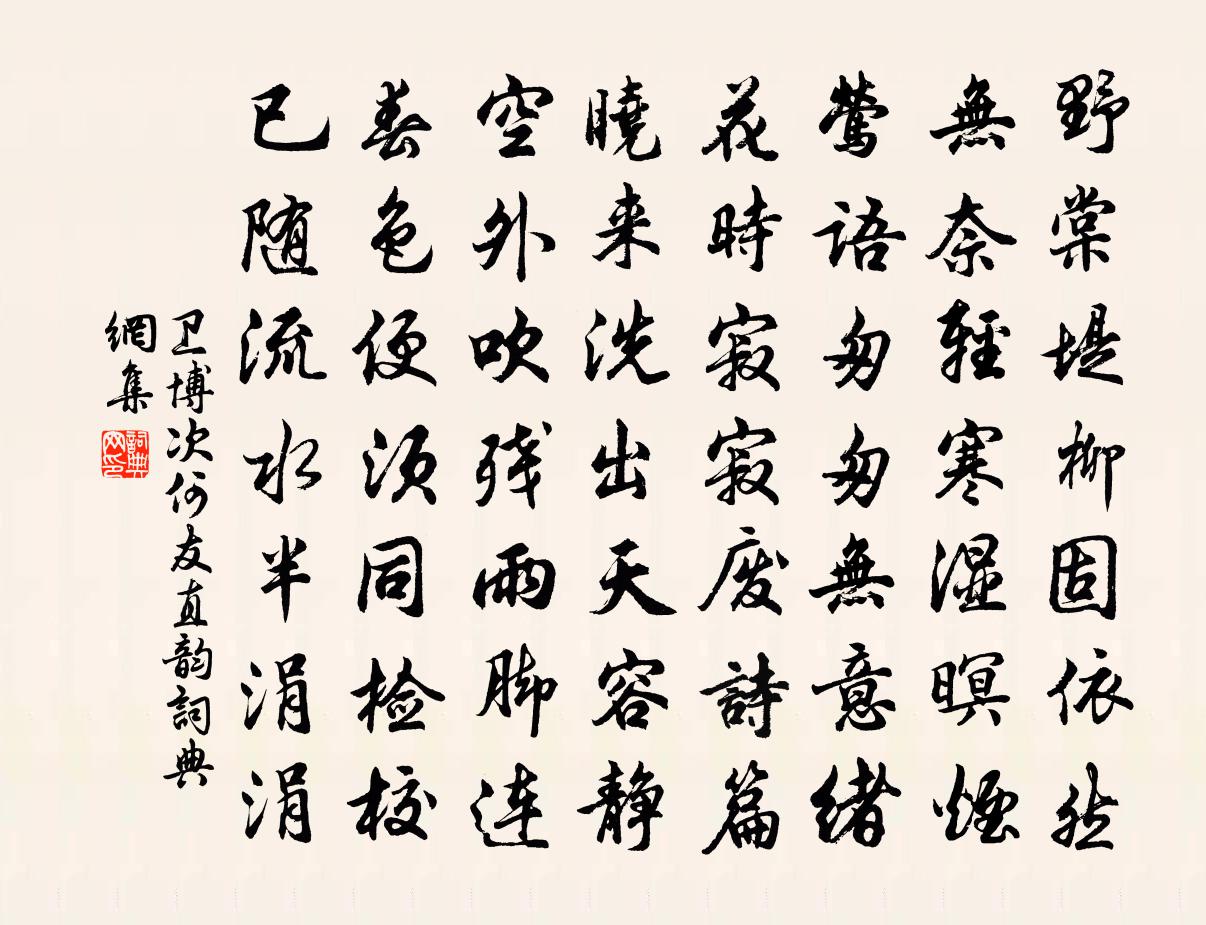 野棠堤柳固依然
無奈輕寒湿暝煙
鶯語匆匆無意緒
花時寂寂废詩篇
曉来洗出天容静
空外吹残雨脚连
春色便须同检校
已随流水半涓涓
卫博次何友直韵詞典
網集
詞典网印